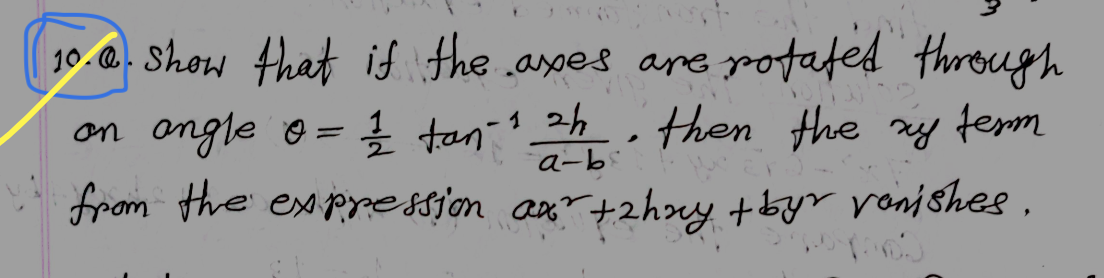 3
10.Q. Show that if the axes are rotated through
an angle θ = 1/2 tan⁻¹ 2h/a-b . then the xy term
from the expression ax² + 2hxy + by² vanishes.